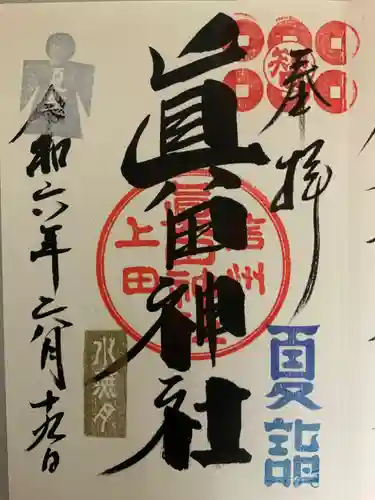 奉拝
智
夏詣
眞田神社
信州
眞田神社
上田
水無月
夏越
令和六年六月十九日